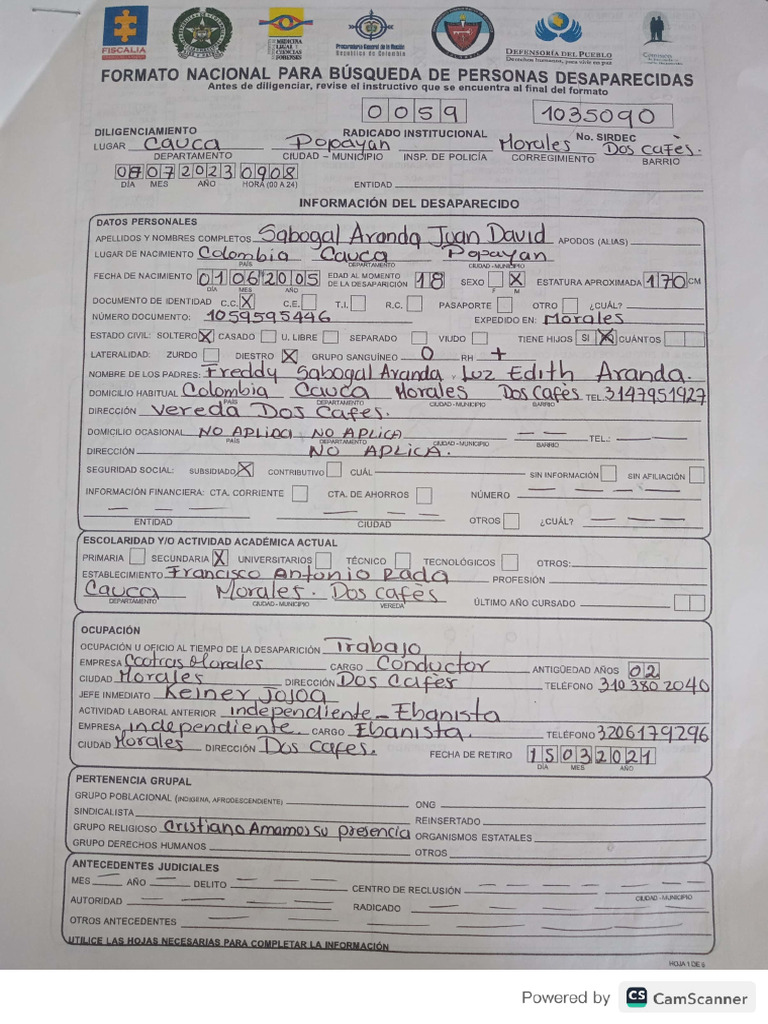 FISCALIA
MEDICINA LEGAL Y CIENCIAS FORENSES
Procuraduría General de la Nación
República de Colombia
DEFENSORÍA DEL PUEBLO
Derechos humanos, para vivir en paz
FORMATO NACIONAL PARA BÚSQUEDA DE PERSONAS DESAPARECIDAS
Antes de diligenciar, revise el instructivo que se encuentra al final del formato
0059 1035090
DILIGENCIAMIENTO RADICADO INSTITUCIONAL No. SIRDEC
LUGAR Cauca Popayan Morales Dos cafès.
DEPARTAMENTO CIUDAD – MUNICIPIO INSP. DE POLICÍA CORREGIMIENTO BARRIO
08072023 0908
DÍA MES AÑO HORA (00 A 24) ENTIDAD
INFORMACIÓN DEL DESAPARECIDO
DATOS PERSONALES
APELLIDOS Y NOMBRES COMPLETOS Sabogal Aranda Juan David APODOS (ALIAS)
LUGAR DE NACIMIENTO Colombia Cauca Popayan
PAÍS DEPARTAMENTO CIUDAD - MUNICIPIO
FECHA DE NACIMIENTO 01062005 EDAD AL MOMENTO DE LA DESAPARICIÓN 18 SEXO X ESTATURA APROXIMADA 170 CM
DÍA MES AÑO F M
DOCUMENTO DE IDENTIDAD C.C. X C.E. T.I. R.C. PASAPORTE OTRO ¿CUÁL?
NÚMERO DOCUMENTO: 1059595446 EXPEDIDO EN: Morales
ESTADO CIVIL: SOLTERO X CASADO U. LIBRE SEPARADO VIUDO TIENE HIJOS SI X CUÁNTOS
LATERALIDAD: ZURDO DIESTRO X GRUPO SANGUÍNEO O RH +
NOMBRE DE LOS PADRES: Freddy Sabogal Aranda . Luz Edith Aranda.
DOMICILIO HABITUAL Colombia Cauca Morales Dos Cafès TEL. 3147951927
PAÍS DEPARTAMENTO CIUDAD - MUNICIPIO BARRIO
DIRECCIÓN Vereda Dos Cafes.
DOMICILIO OCASIONAL NO APLICA NO APLICA — — TEL.: — —
PAÍS DEPARTAMENTO CIUDAD - MUNICIPIO BARRIO
DIRECCIÓN NO APLICA.
SEGURIDAD SOCIAL: SUBSIDIADO X CONTRIBUTIVO CUÁL SIN INFORMACIÓN SIN AFILIACIÓN
INFORMACIÓN FINANCIERA: CTA. CORRIENTE CTA. DE AHORROS NÚMERO — — — —
— — — — — — — OTROS ¿CUÁL? — —
ENTIDAD CIUDAD
ESCOLARIDAD Y/O ACTIVIDAD ACADÉMICA ACTUAL
PRIMARIA SECUNDARIA X UNIVERSITARIOS TÉCNICO TECNOLÓGICOS OTROS:
ESTABLECIMIENTO Francisco Antonio Rada PROFESIÓN
Cauca Morales. Dos cafès ÚLTIMO AÑO CURSADO
DEPARTAMENTO CIUDAD - MUNICIPIO VEREDA
OCUPACIÓN
OCUPACIÓN U OFICIO AL TIEMPO DE LA DESAPARICIÓN Trabajo
EMPRESA Cootras Morales CARGO Conductor ANTIGÜEDAD AÑOS 02
CIUDAD Morales DIRECCIÓN Dos Cafès TELÉFONO 310 380 2040
JEFE INMEDIATO Keiner Jojoa
ACTIVIDAD LABORAL ANTERIOR independiente - Ebanista
EMPRESA independiente CARGO Ebanista. TELÉFONO 3206179296
CIUDAD Morales DIRECCIÓN Dos Cafes. FECHA DE RETIRO 15032021
DÍA MES AÑO
PERTENENCIA GRUPAL
GRUPO POBLACIONAL (INDIGENA, AFRODESCENDIENTE) ONG
SINDICALISTA REINSERTADO
GRUPO RELIGIOSO Cristiano Amamos su presencia ORGANISMOS ESTATALES
GRUPO DERECHOS HUMANOS OTROS
ANTECEDENTES JUDICIALES
MES — AÑO — DELITO — — — CENTRO DE RECLUSIÓN — — — —
CIUDAD - MUNICIPIO
AUTORIDAD — — — — RADICADO — — — —
OTROS ANTECEDENTES — — — —
UTILICE LAS HOJAS NECESARIAS PARA COMPLETAR LA INFORMACIÓN
HOJA 1 DE 5
Powered by CS CamScanner